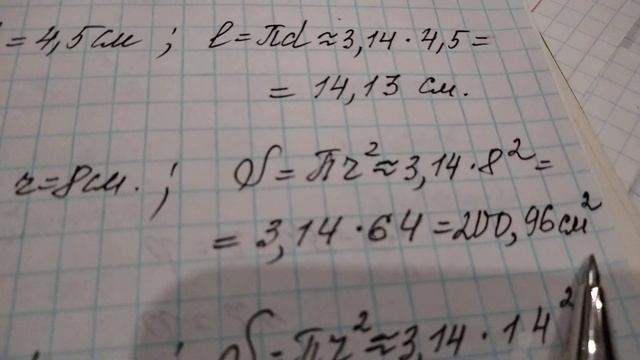 = 4,5 см ; l = πd ≈ 3,14 · 4,5 =
= 14,13 см.
r = 8 см. ; S = πr² ≈ 3,14 · 8² =
= 3,14 · 64 = 200,96 см²
; S = πr² ≈ 3,14 · 14²